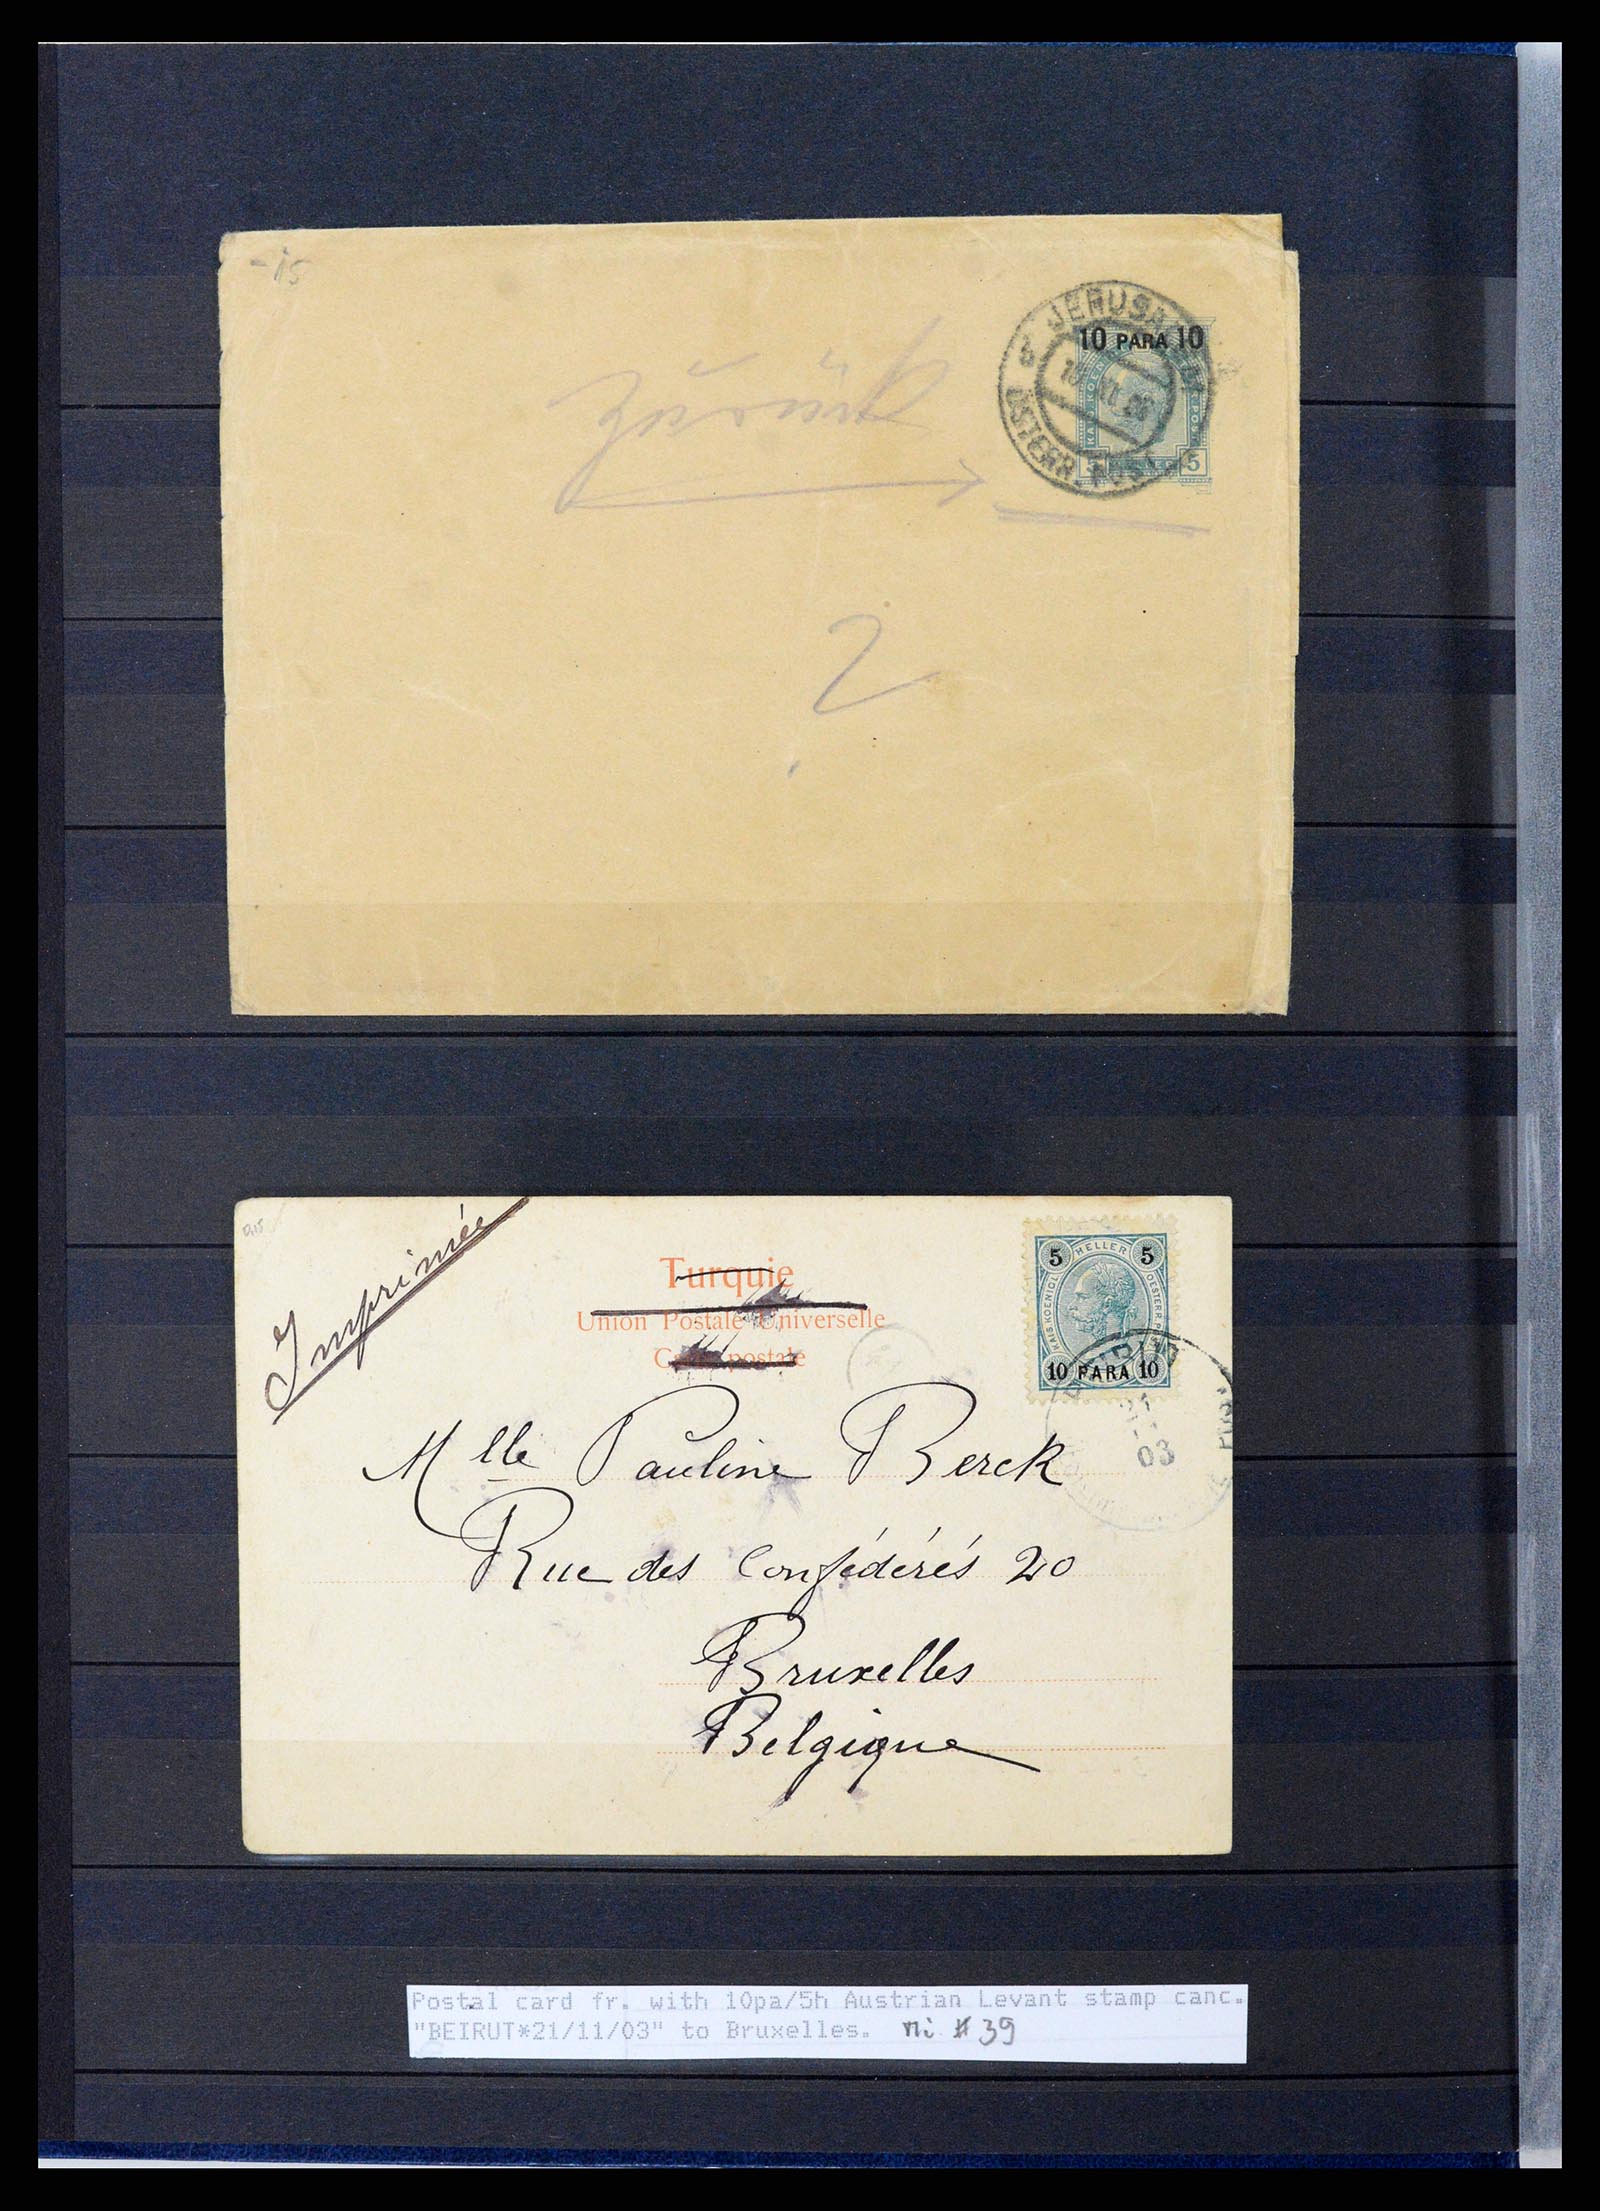 -15
JERUSA
10 PARA 10
ÖSTERR. POST
5
zurück
2
Imprimée
Turquie
Union Postale Universelle
Carte postale
5 HELLER 5
KAIS. KOENIGL. OESTERR. POST
10 PARA 10
03
Mlle Pauline Berck
Rue des Confédérés 20
Bruxelles
Belgique
Postal card fr. with 10pa/5h Austrian Levant stamp canc.
"BEIRUT*21/11/03" to Bruxelles. Mi # 39